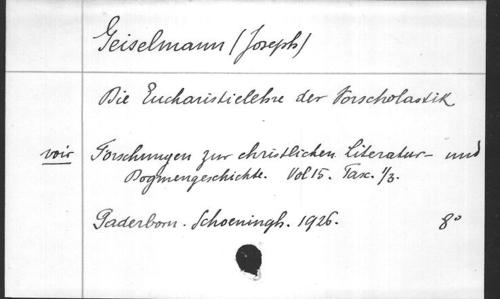 Geiselmann (Joseph)
Die Eucharistielehre der Vorscholastik
voir Forschungen zur christlichen Literatur- und
Dogmengeschichte. Vol 15. Fasc. 1/3.
Paderborn. Schoeningh. 1926. 8°